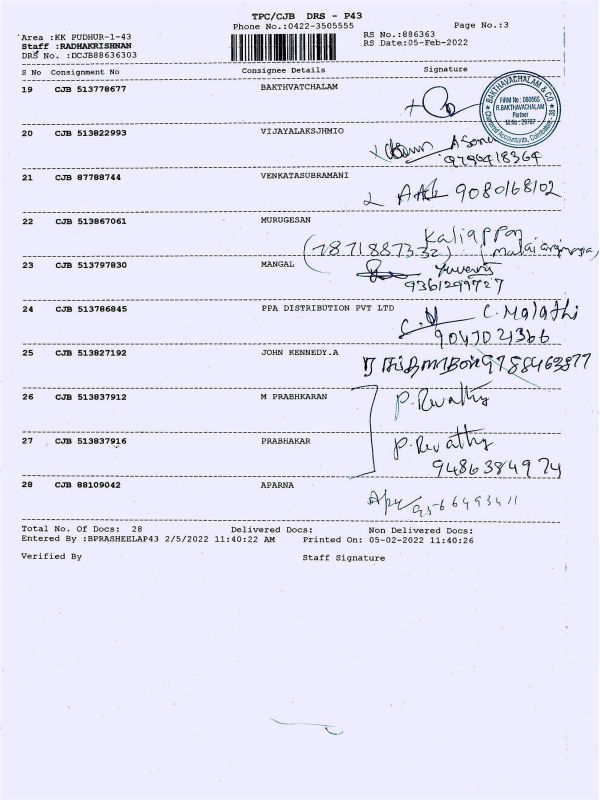 TPC/CJB DRS - P43
Phone No.:0422-3505555
Page No.:3
Area :KK PUDHUR-1-43
RS No.:886363
Staff :RADHAKRISHNAN
RS Date:05-Feb-2022
DRS No. :DCJB88636303
S No Consignment No Consignee Details Signature
19 CJB 513778677 BAKTHVATCHALAM
BAKTHAVACHALAM & CO
FIRM No : 06056S
R.BAKTHAVACHALAM
Partner
Accountants, Coimbatore - 38
20 CJB 513822993 VIJAYALAKSJHMIO
21 CJB 87788744 VENKATASUBRAMANI
9080168102
22 CJB 513867061 MURUGESAN
Kaliappan
(7871887332)
23 CJB 513797830 MANGAL
9361299727
24 CJB 513786845 PPA DISTRIBUTION PVT LTD
C. Malathi
9047021366
25 CJB 513827192 JOHN KENNEDY.A
9788463877
26 CJB 513837912 M PRABHKARAN
P. Revathy
27 CJB 513837916 PRABHAKAR
P. Revathy
9486384974
28 CJB 88109042 APARNA
Total No. Of Docs: 28 Delivered Docs: Non Delivered Docs:
Entered By :BPRASHEELAP43 2/5/2022 11:40:22 AM Printed On: 05-02-2022 11:40:26
Verified By Staff Signature